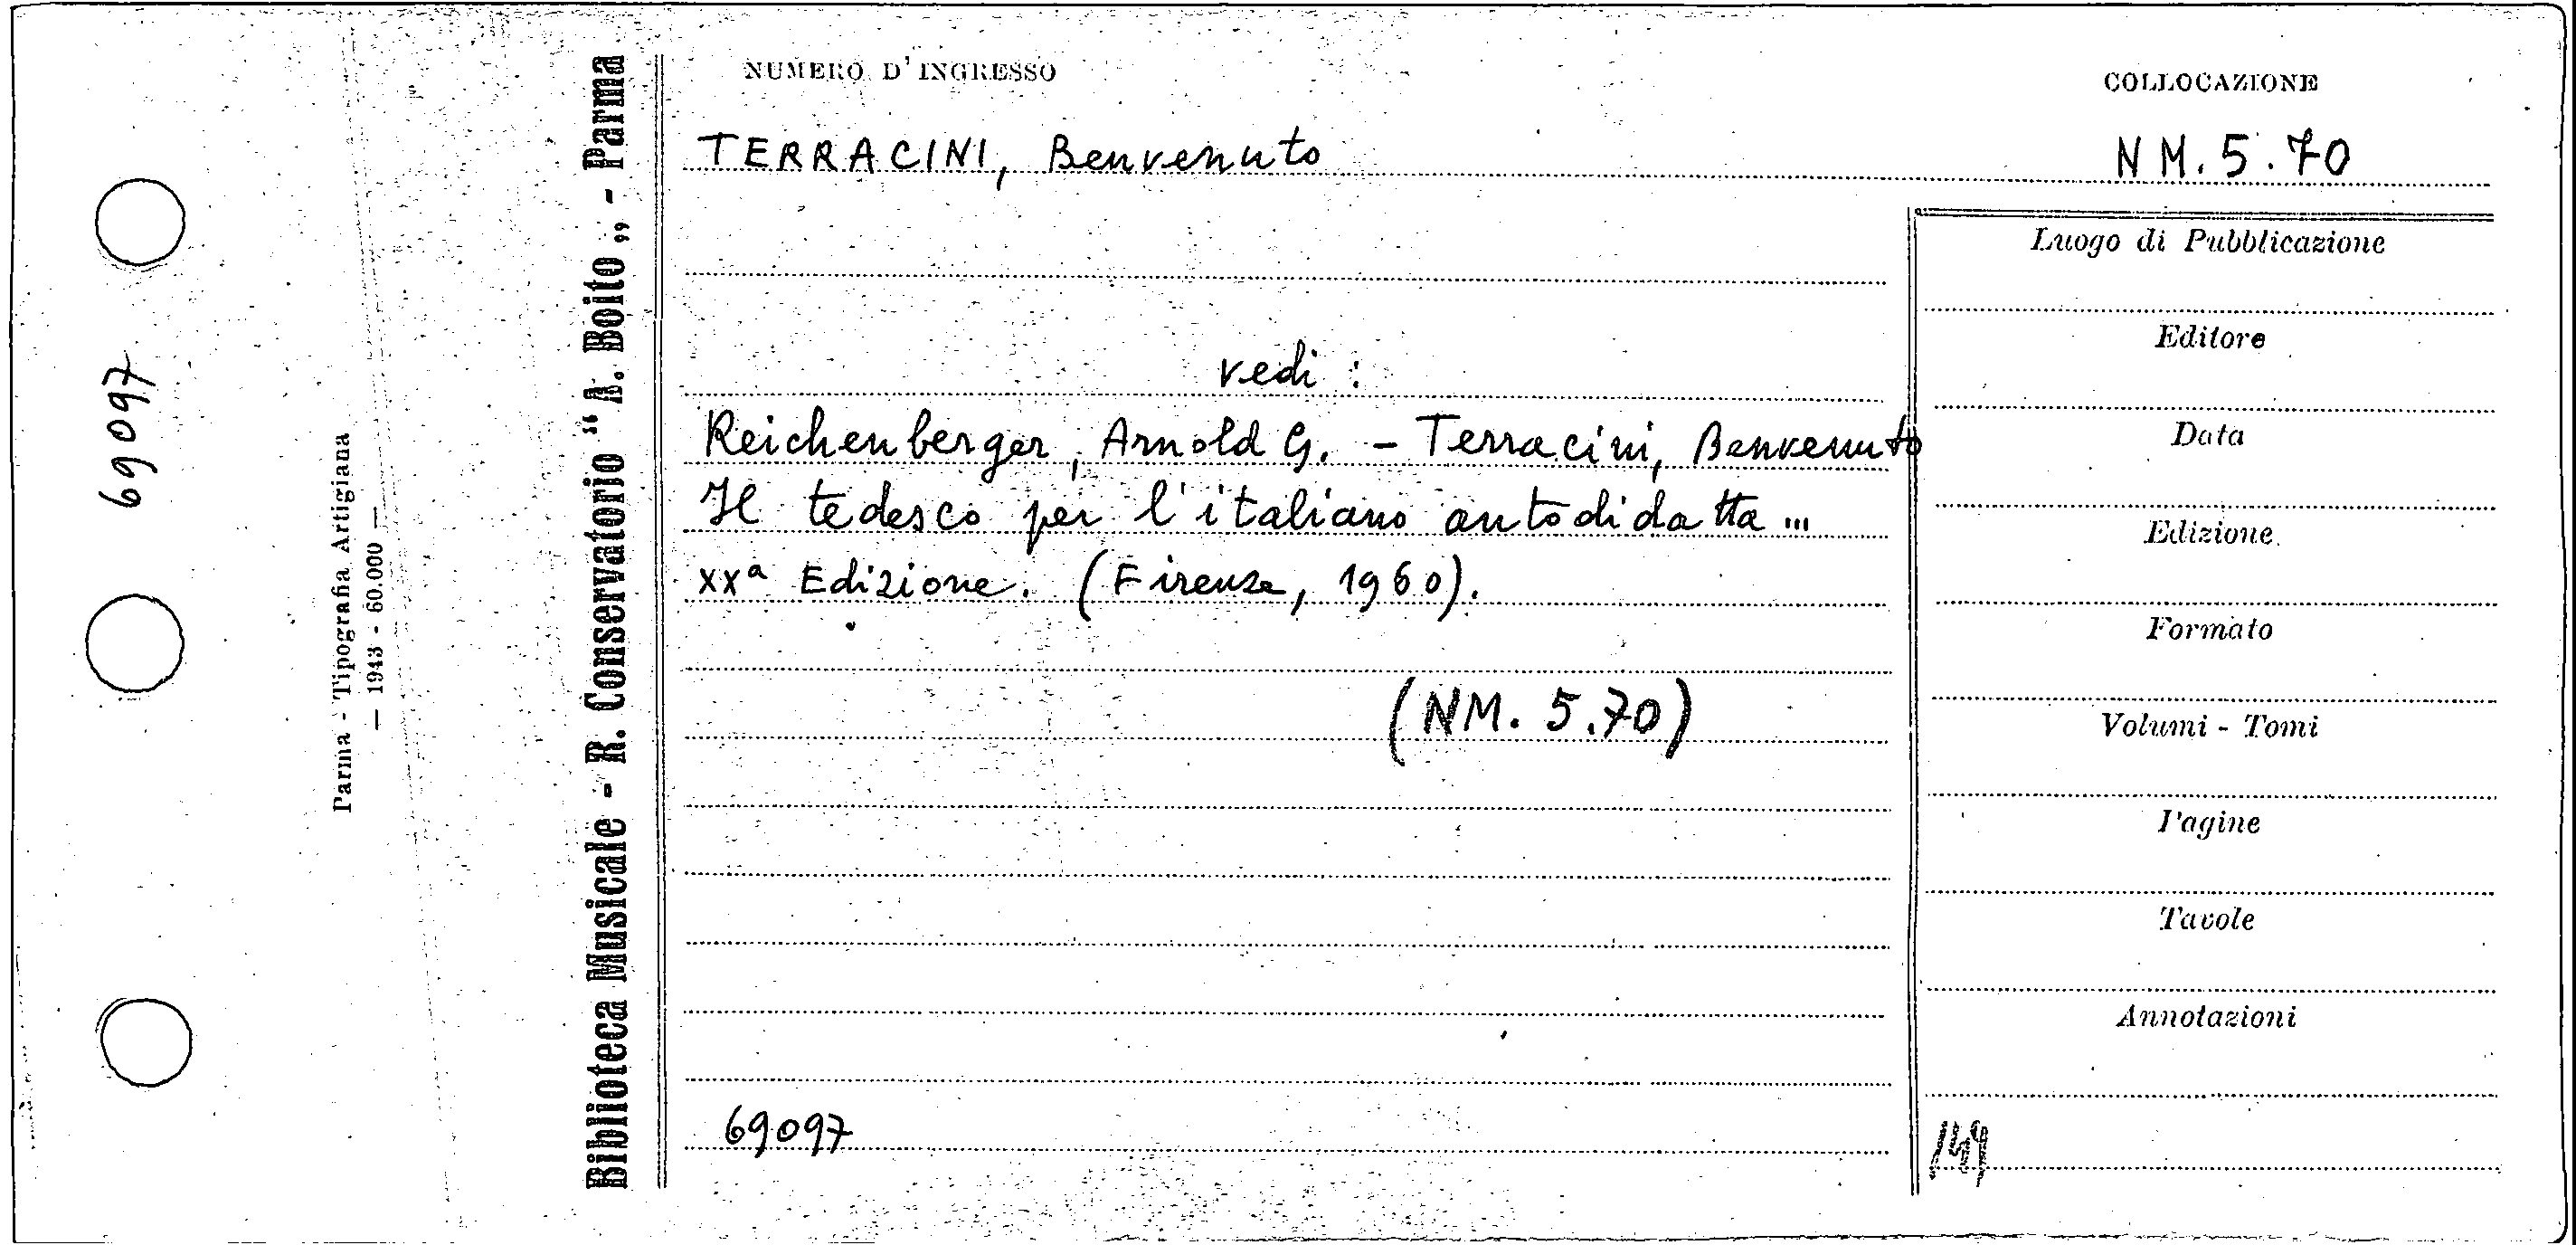 69097
Parma - Tipografia Artigiana
— 1943 - 60.000 —
Biblioteca Musicale - R. Conservatorio “A. Boito„ - Parma
NUMERO D'INGRESSO
COLLOCAZIONE
TERRACINI, Benvenuto
NM. 5. 70
vedi :
Reichenberger, Arnold G. - Terracini, Benvenuto
Il tedesco per l'italiano autodidatta ...
XXª Edizione. (Firenze, 1960).
(NM. 5.70)
69097
Luogo di Pubblicazione
Editore
Data
Edizione
Formato
Volumi - Tomi
Pagine
Tavole
Annotazioni
149